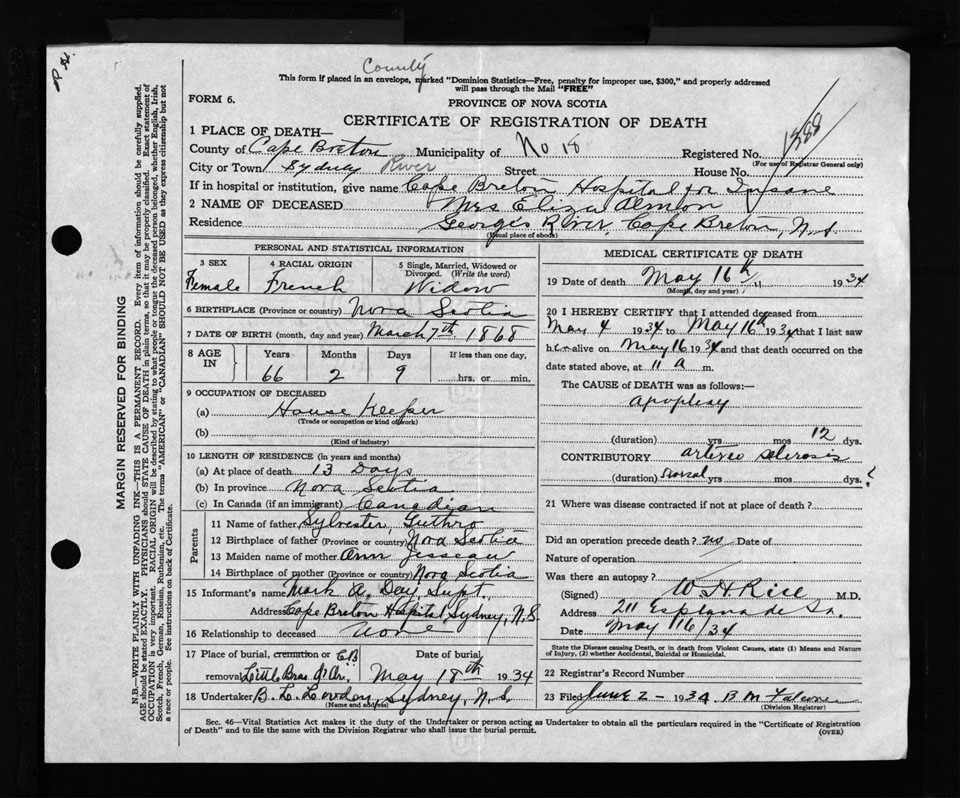 County
This form if placed in an envelope, marked "Dominion Statistics—Free, penalty for improper use, $300," and properly addressed
will pass through the Mail "FREE"
FORM 6.
PROVINCE OF NOVA SCOTIA
CERTIFICATE OF REGISTRATION OF DEATH
1 PLACE OF DEATH—
County of Cape Breton Municipality of No 18 Registered No.
(For use of Registrar General only)
City or Town Sydney River Street House No.
If in hospital or institution, give name Cape Breton Hospital for Insane
2 NAME OF DECEASED Mrs Eliza Almon
Residence Georges River, Cape Breton, N.S.
(Usual place of abode)
PERSONAL AND STATISTICAL INFORMATION
3 SEX 4 RACIAL ORIGIN 5 Single, Married, Widowed or
Divorced. (Write the word)
Female French Widow
6 BIRTHPLACE (Province or country) Nova Scotia
7 DATE OF BIRTH (month, day and year) March 7th 1868
8 AGE IN Years Months Days If less than one day,
66 2 9 hrs. or min.
9 OCCUPATION OF DECEASED
(a) House Keeper
(Trade or occupation or kind of work)
(b)
(Kind of industry)
10 LENGTH OF RESIDENCE (in years and months)
(a) At place of death 13 Days
(b) In province Nova Scotia
(c) In Canada (if an immigrant) Canadian
Parents
11 Name of father Sylvester Guthro
12 Birthplace of father (Province or country) Nova Scotia
13 Maiden name of mother Ann
14 Birthplace of mother (Province or country) Nova Scotia
15 Informant's name Mark A. Day Supt.
Address Cape Breton Hospital, Sydney, N.S.
16 Relationship to deceased none
17 Place of burial, cremation or C.B. Date of burial,
removal Little Bras d'Or, May 18th 1934
18 Undertaker Sydney, N.S.
(Name and address)
MEDICAL CERTIFICATE OF DEATH
19 Date of death May 16th 1934
(Month, day and year)
20 I HEREBY CERTIFY that I attended deceased from
May 4 1934 to May 16th 1934 that I last saw
her alive on May 16 1934 and that death occurred on the
date stated above, at 11 a m.
The CAUSE of DEATH was as follows:—
Apoplexy
(duration) yrs mos 12 dys.
CONTRIBUTORY arterio sclerosis
(duration) several yrs mos dys. ?
21 Where was disease contracted if not at place of death?
Did an operation precede death? no Date of
Nature of operation
Was there an autopsy?
(Signed) W H Rice M.D.
Address 211 Esplanade
Date May 16/34
State the Disease causing Death, or in death from Violent Causes, state (1) Means and Nature
of Injury, (2) whether Accidental, Suicidal or Homicidal.
22 Registrar's Record Number
23 Filed June 2 - 1934 B M
(Division Registrar)
Sec. 46—Vital Statistics Act makes it the duty of the Undertaker or person acting as Undertaker to obtain all the particulars required in the "Certificate of Registration
of Death" and to file the same with the Division Registrar who shall issue the burial permit.
(OVER)
MARGIN RESERVED FOR BINDING
N.B.—WRITE PLAINLY WITH UNFADING INK—THIS IS A PERMANENT RECORD. Every item of information should be carefully supplied.
AGE should be stated EXACTLY. PHYSICIANS should STATE CAUSE OF DEATH in plain terms, so that it may be properly classified. Exact statement of
OCCUPATION is very important. RACIAL ORIGIN will be described by stating to what people or tongue the deceased person belonged, whether English, Irish,
Scotch, French, German, Russian, Ruthenian, etc. The terms "AMERICAN" or "CANADIAN" SHOULD NOT BE USED as they express citizenship but not
a race or people. See instructions on back of Certificate.